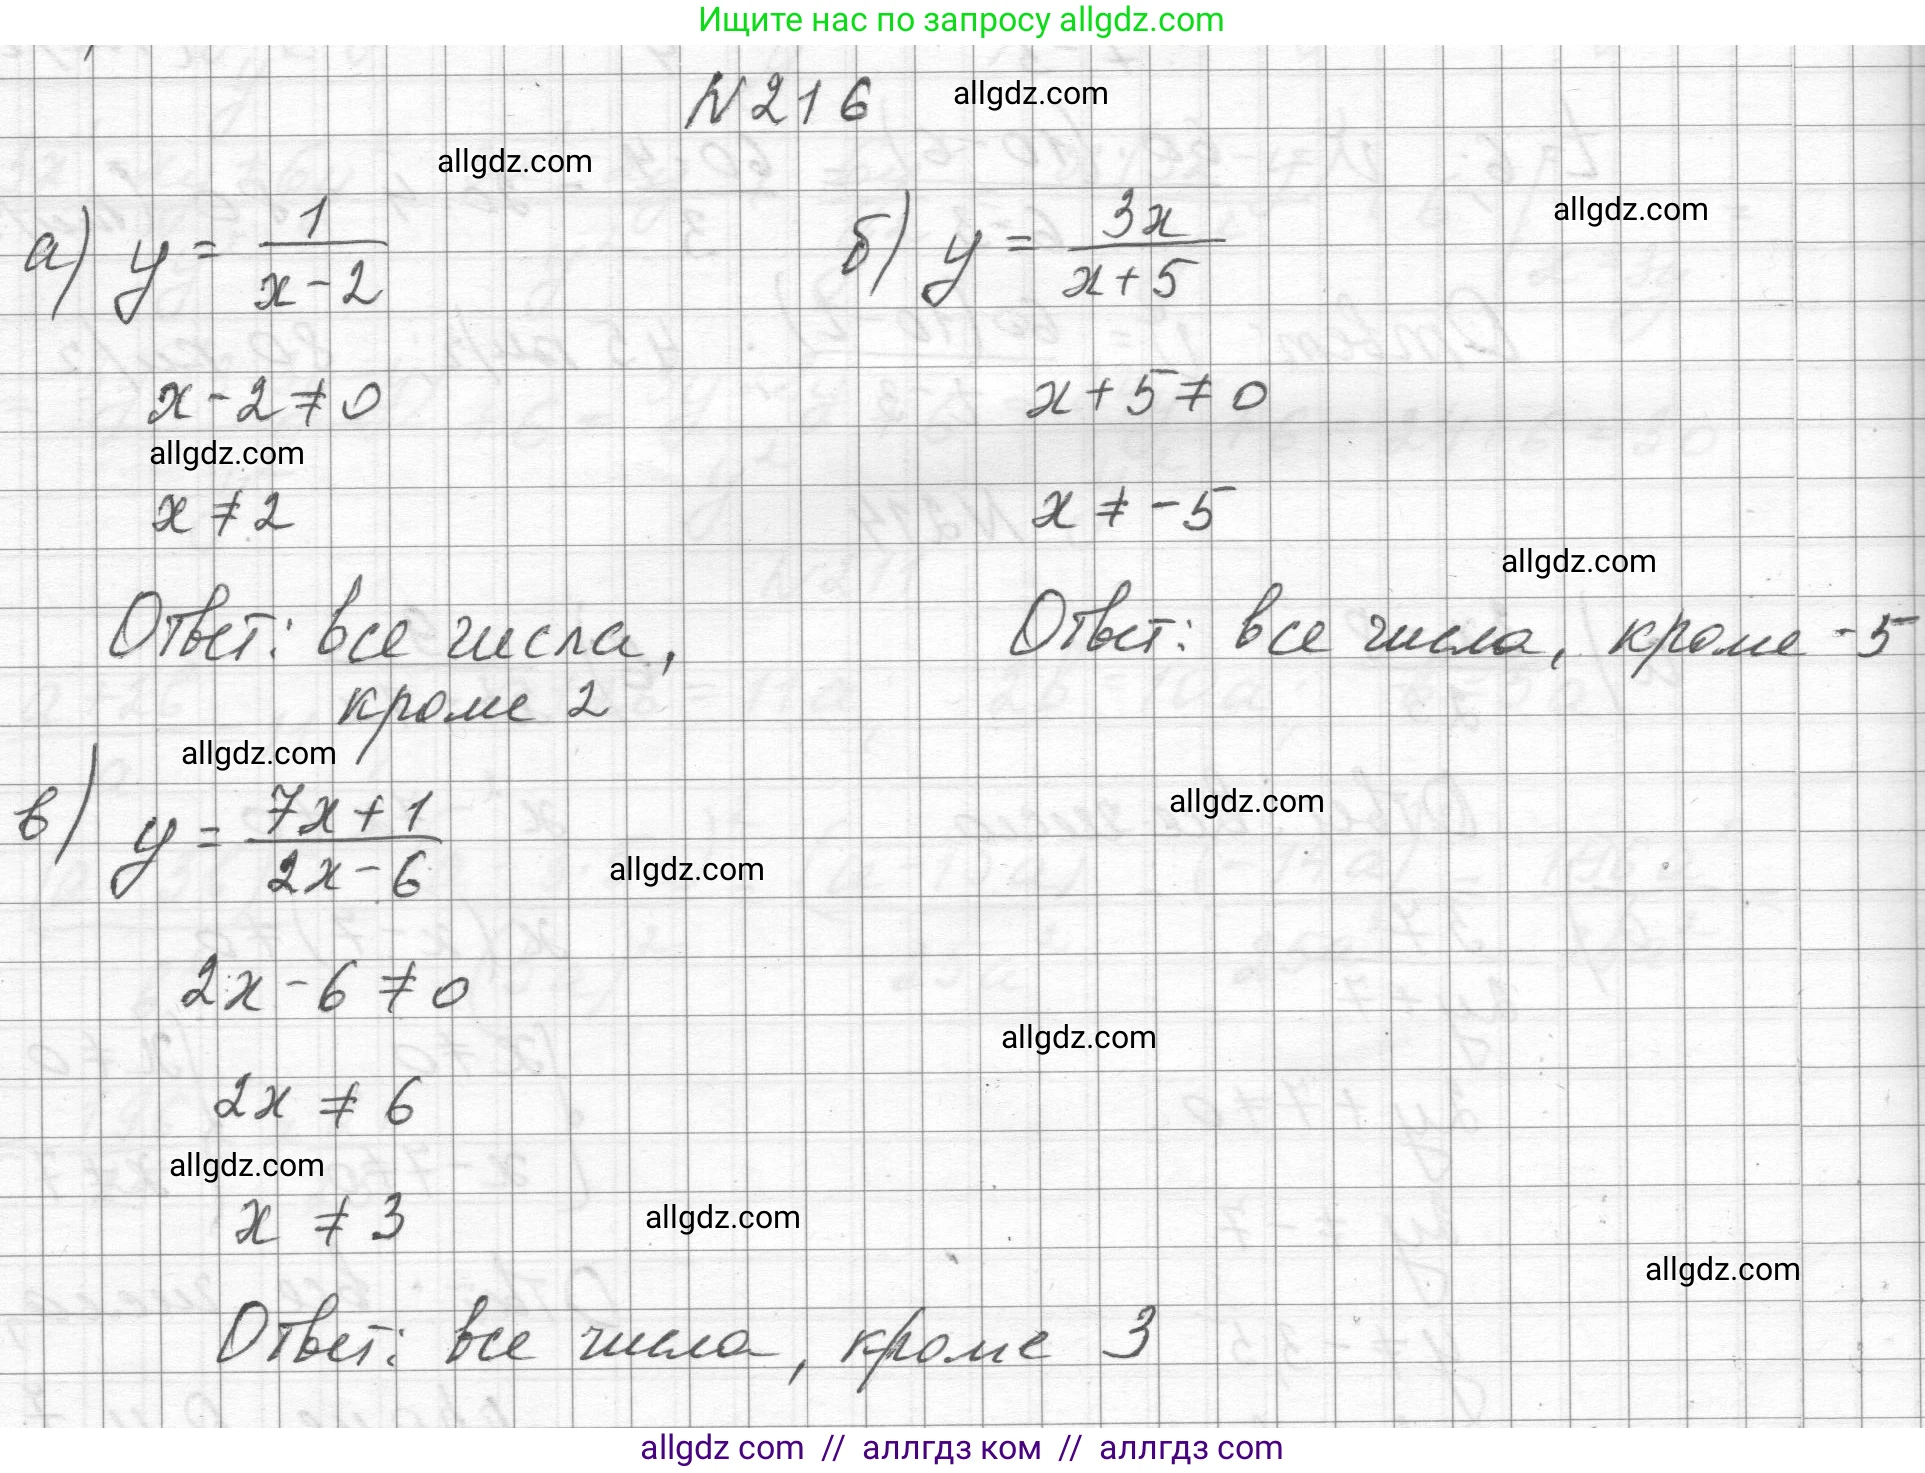 Ищите нас по запросу allgdz.com
N 216
allgdz.com
allgdz.com
allgdz.com
а) y = 1/(x - 2)
б) y = 3x/(x + 5)
x - 2 ≠ 0
x + 5 ≠ 0
allgdz.com
x ≠ 2
x ≠ -5
allgdz.com
Ответ: все числа,
кроме 2
Ответ: все числа, кроме -5
allgdz.com
в) y = (7x + 1)/(2x - 6)
allgdz.com
allgdz.com
2x - 6 ≠ 0
allgdz.com
2x ≠ 6
allgdz.com
x ≠ 3
allgdz.com
allgdz.com
Ответ: все числа, кроме 3
allgdz com // аллгдз ком // аллгдз com